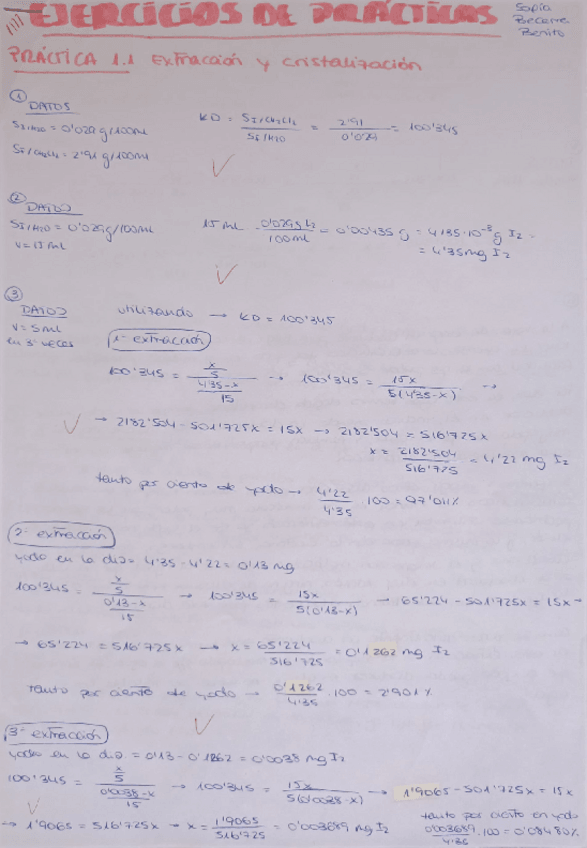 EJERCICIOS DE PRÁCTICAS
Sofía
Becerra
Benito
PRÁCTICA 1.1 Extracción y cristalización
① DATOS
S I/H2O = 0'029 g/100ml
S I/CH2Cl2 = 2'91 g/100ml
KD = S I/CH2Cl2 / S I/H2O = 2'91 / 0'029 = 100'345
② DATOS
S I/H2O = 0'029g/100ml
V = 15 ml
15 ml · 0'029g I2 / 100ml = 0'00435 g = 4'35·10⁻³ g I2
= 4'35mg I2
③ DATOS
V = 5ml
en 3 veces
utilizando → KD = 100'345
1ª extracción
100'345 = (x/5) / ((4'35-x)/15) → 100'345 = 15x / 5(4'35-x) →
→ 2182'504 - 501'725x = 15x → 2182'504 = 516'725x
x = 2182'504 / 516'725 = 4'22 mg I2
tanto por ciento de yodo → 4'22 / 4'35 · 100 = 97'011%
2ª extracción
yodo en la disº = 4'35 - 4'22 = 0'13 mg
100'345 = (x/5) / ((0'13-x)/15) → 100'345 = 15x / 5(0'13-x) → 65'224 - 501'725x = 15x →
→ 65'224 = 516'725x → x = 65'224 / 516'725 = 0'1262 mg I2
tanto por ciento de yodo → 0'1262 / 4'35 · 100 = 2'901%
3ª extracción
yodo en la disº = 0'13 - 0'1262 = 0'0038 mg I2
100'345 = (x/5) / ((0'0038-x)/15) → 100'345 = 15x / 5(0'0038-x) → 1'9065 - 501'725x = 15x
→ 1'9065 = 516'725x → x = 1'9065 / 516'725 = 0'003689 mg I2
tanto por ciento en yodo
0'003689 / 4'35 · 100 = 0'08480%